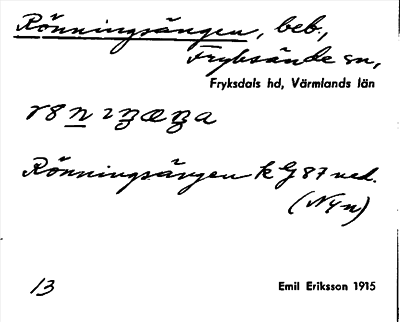 Rönningsängen, beb.,
Fryksände sn,
Fryksdals hd, Värmlands län
Rönningsängen k G 87 ned.
(Nyn)
13
Emil Eriksson 1915